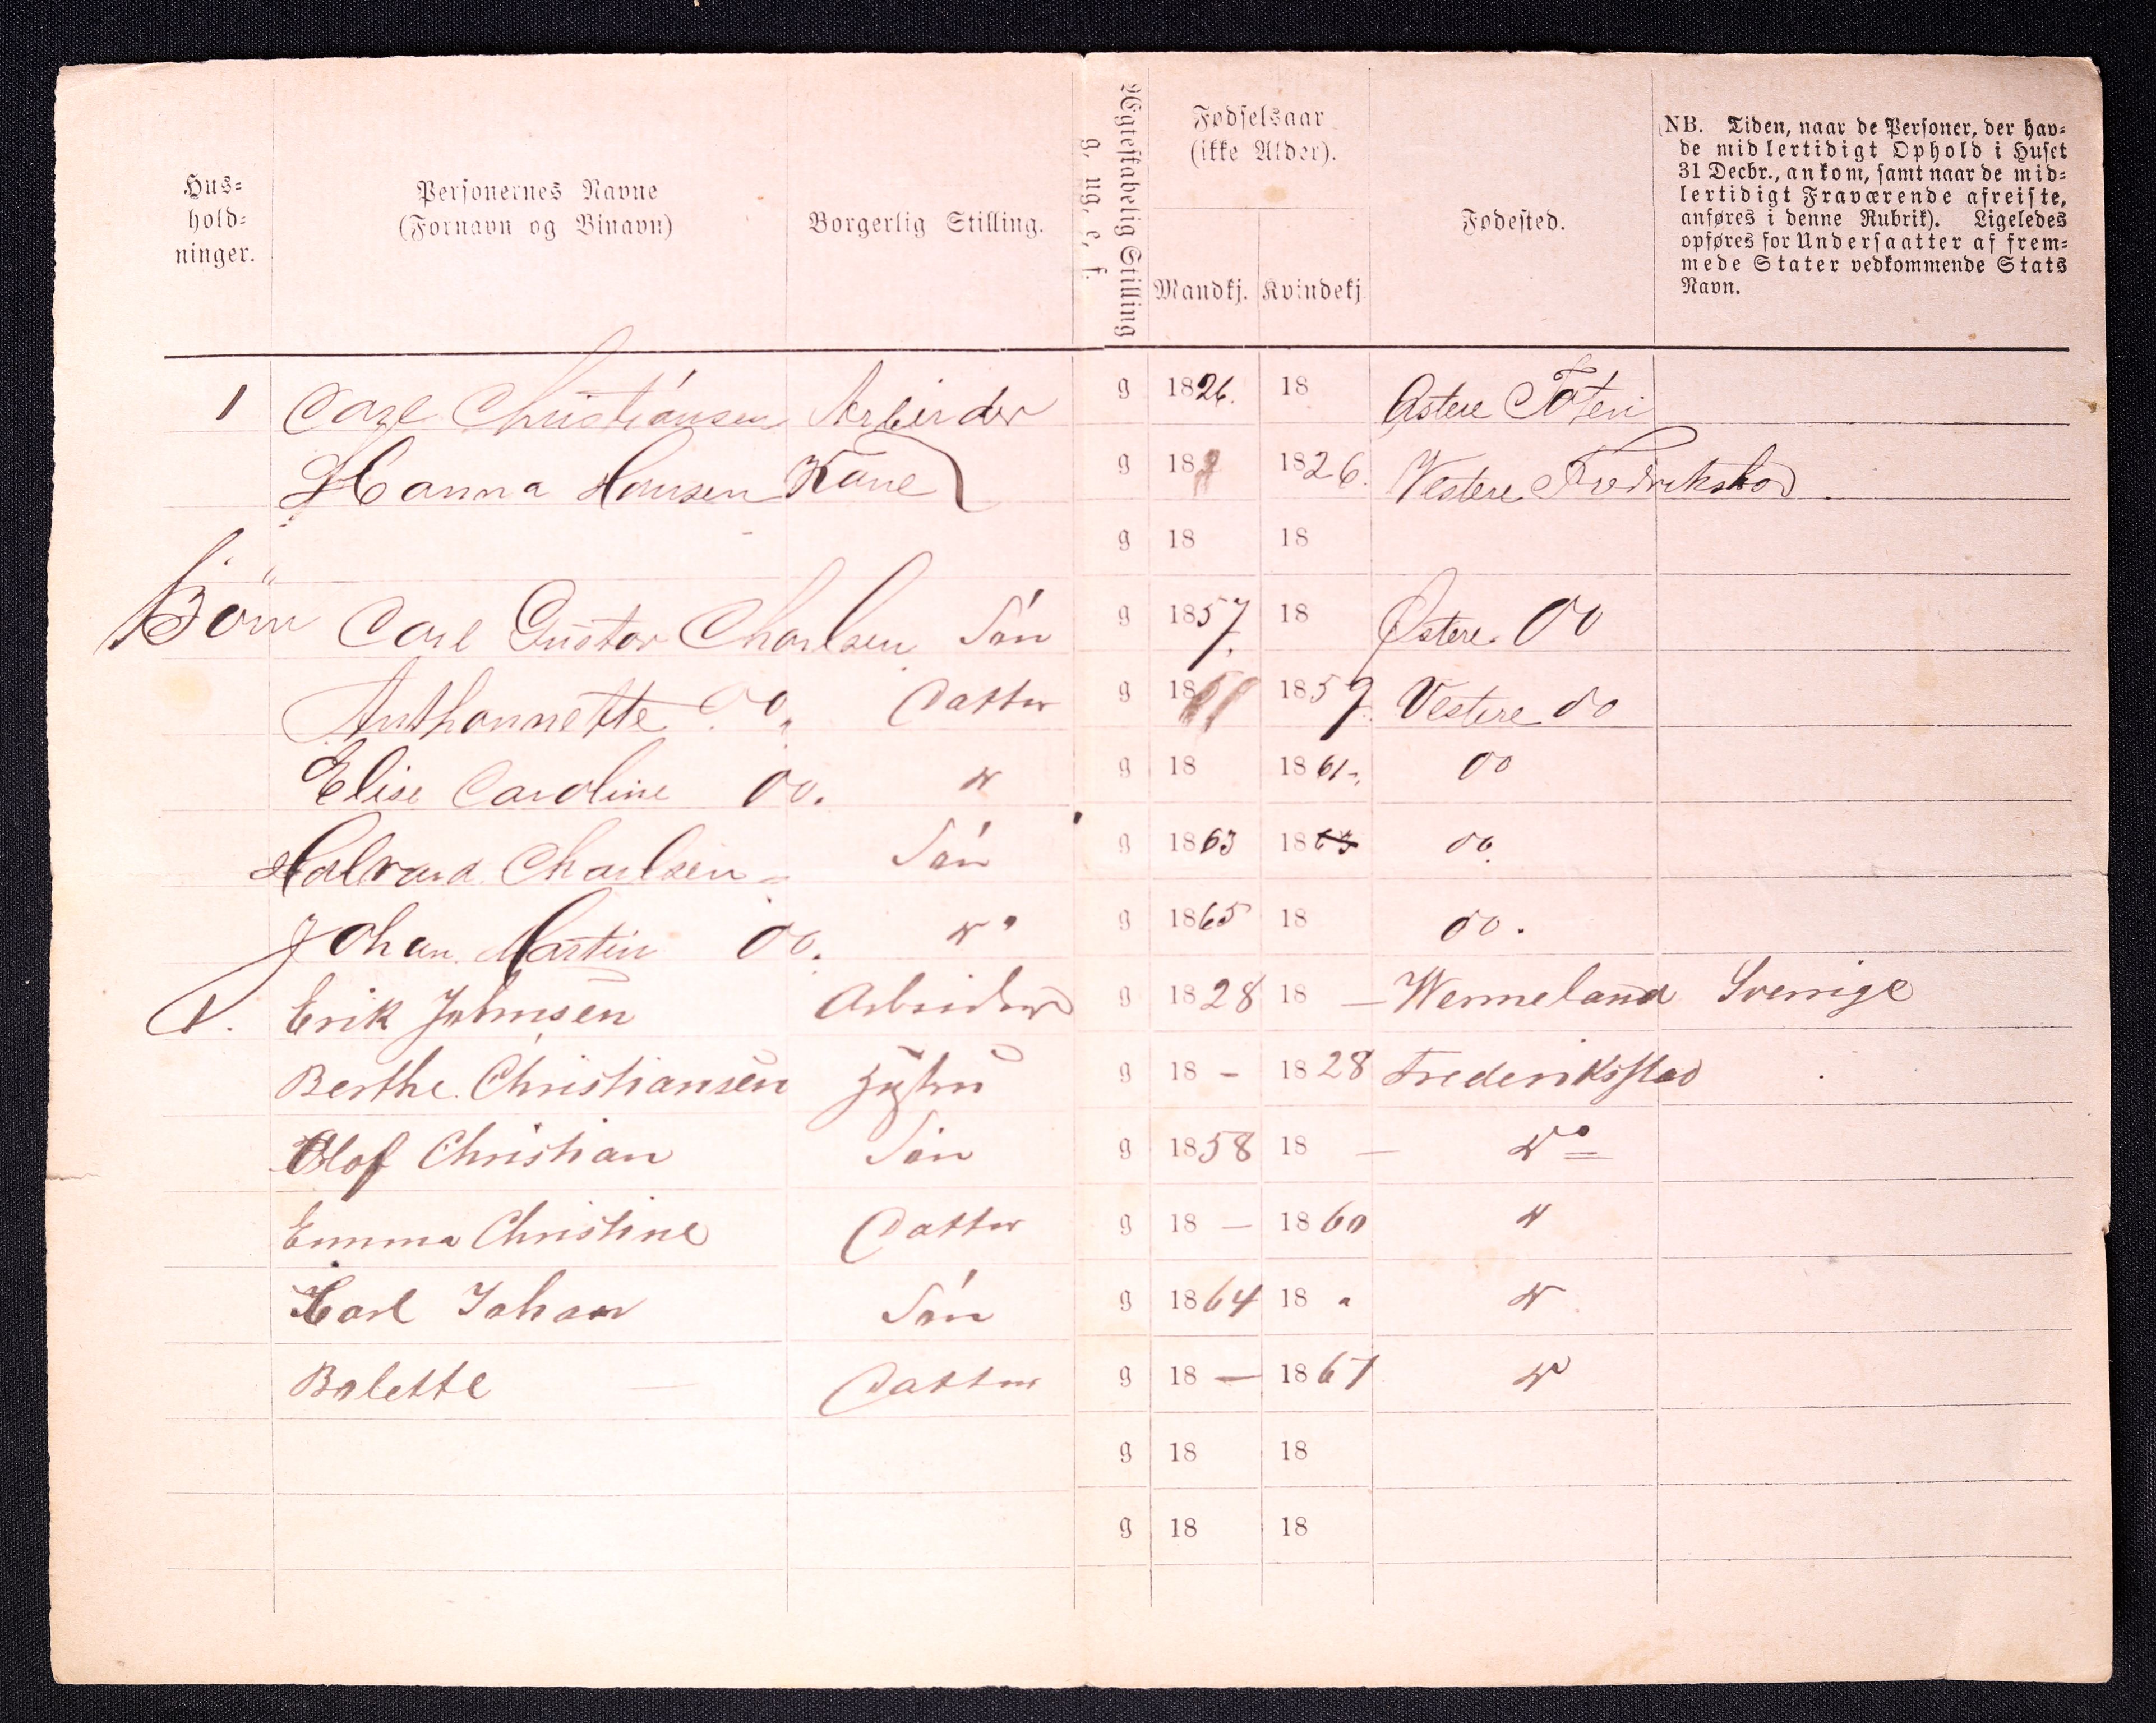 Hus-
hold-
ninger.
Personernes Navne
(Fornavn og Binavn)
Borgerlig Stilling.
Ægteskabelig Stilling
g, ug, e, f.
Fødselsaar
(ikke Alder).
Mandkj. Kvindekj.
Fødested.
NB. Tiden, naar de Personer, der hav-
de midlertidigt Ophold i Huset
31 Decbr., ankom, samt naar de mid-
lertidigt Fraværende afreiste,
anføres i denne Rubrik). Ligeledes
opføres for Undersaatter af frem-
mede Stater vedkommende Stats
Navn.
1 Carl Christiansen Arbeider g 1826. 18 Østere Toten
Hanna Hansen Kone g 18 1826. Vestere Fredrikstad.
g 18 18
Börn Carl Gustav Charlsen Sön g 1857. 18 Østere do
Anthonnette do " Datter g 18 1859. Vestere do
Elise Caroline do. " g 18 1861 do
Halvard Charlsen Sön g 1863 1863 do.
Johan Martin do. " g 1865 18 do.
1. Erik Johnsen Arbeider g 1828 18 — Wermeland Sverrige
Berthe Christiansen Hustru g 18 - 1828 Frederiksstad
Olof Christian Sön g 1858 18 — Do
Emma Christine Datter g 18 — 1860 "
Karl Johan Sön g 1864 18 " "
Bolette — Datter g 18 — 1867 "
g 18 18
g 18 18